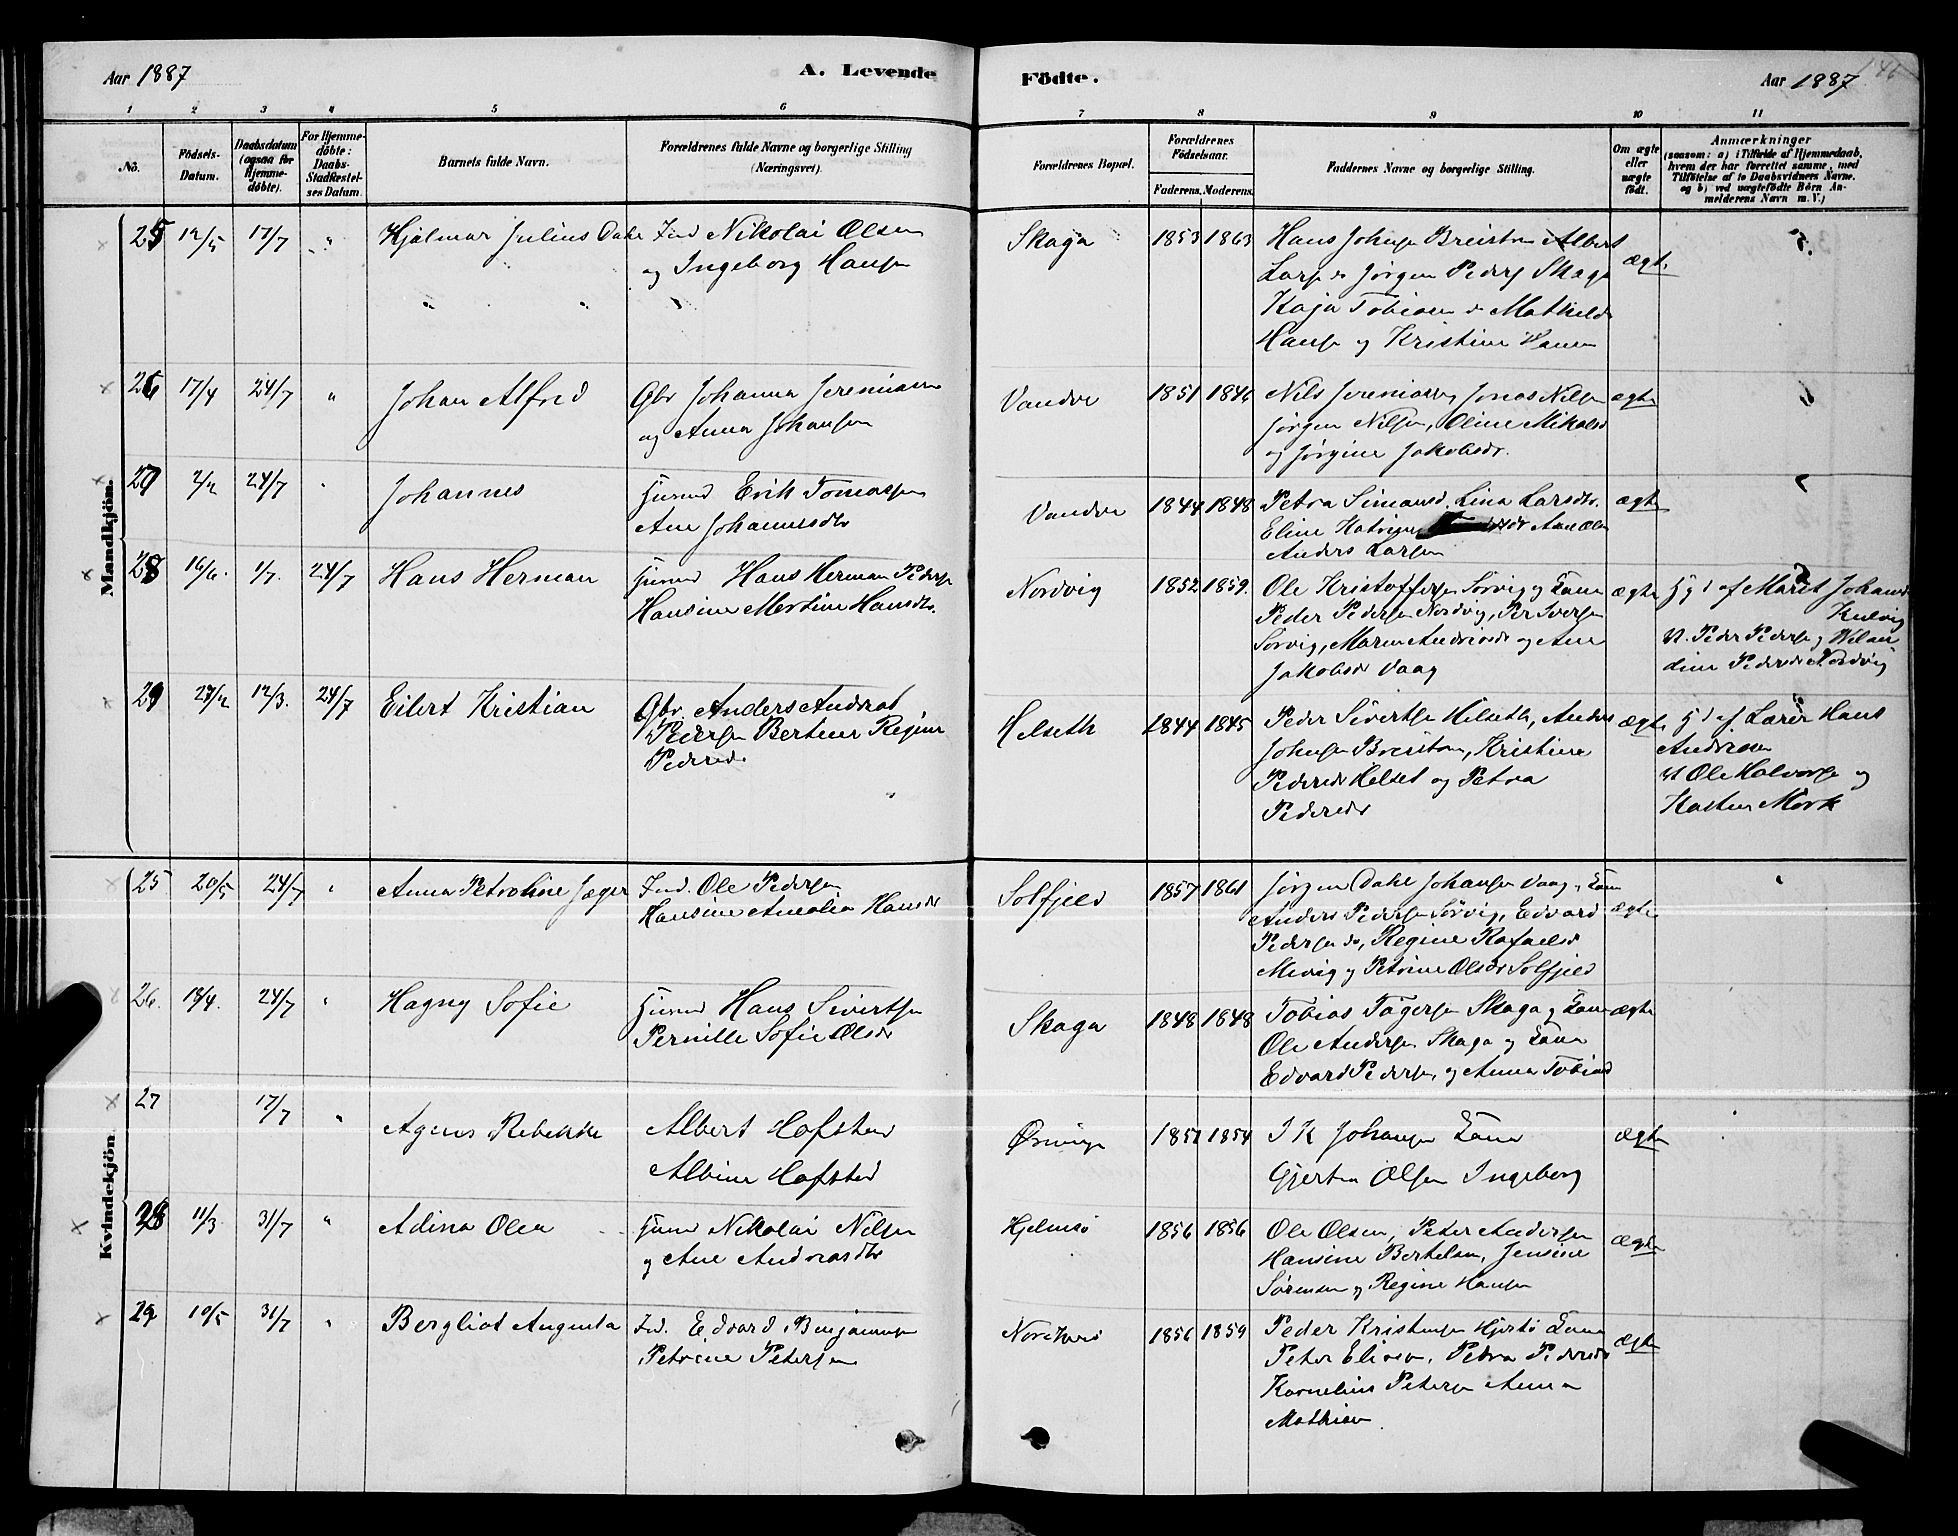 Aar 1887
A. Levende
Födte.
Aar 1887
146
1 2 3 4 5 6 7 8 9 10 11
No.
Födsels-Datum.
Daabsdatum (ogsaa for Hjemme-döbte).
For Hjemme-döbte: Daabs-Stadfæstel-ses Datum.
Barnets fulde Navn.
Forældrenes fulde Navne og borgerlige Stilling (Næringsvei).
Forældrenes Bopæl.
Forældrenes Födselsaar.
Faderens. Moderens.
Faddernes Navne og borgerlige Stilling.
Om ægte eller uægte födt.
Anmærkninger
(saasom: a) i Tilfælde af Hjemmedaab, hvem der har forrettet samme, med Tilföielse af to Daabsvidners Navne, og b) ved uægtefödte Börn An-melderens Navn m. V.)
Mandkjön.
25 12/5 17/7 " Hjalmar Julius Dahl Ind Nikolai Olsen
og Ingeborg Hansen
Skaga 1853 1863 Hans Johnsen Breistrn Albert
Larsen do Jørgen Peders Skaga
Kaja Tobiasen do Mathilde
Hansen og Kristine Hansen
ægte
26 17/4 24/7 " Johan Alfred Gbr Johannes Jeremiasen
og Anna Johansen
Vandve 1851 1846 Nils Jeremiasen, Jonas Nilsen
Jørgen Nilsen, Oline Mikalsd
og Jørgine Jakobsdr.
ægte
27 2/2 24/7 " Johannes Husmd Erik Tomassen
Ane Johannesdtr
Vandve 1844 1848 Petra Simonsd. Lina Larsdtr.
Eline Katrine Ane Olsen
Anders Larsen
ægte
28 16/6. 1/7. 24/7 Hans Herman Husmd Hans Herman Pedersen
Hansine Martine Hansdtr.
Nordvig 1852 1859. Ole Kristoffersen Sørvig og Kone
Peder Pedersen Nordvig, Per Iversen
Sørvig, Maren Andreasdr og Ane
Jakobsdr Vaag
ægte Hjd af Maret Johansd
Kulvig
Vt. Peder Pedersen og
dine Pedersdr Nordvig
29 27/2 12/3. 24/7 Eilert Kristian Gbr. Anders Andreas
Pedersen Bertine Regine
Pedersdr
Helseth 1844 1845 Peder Sivertsen Helseth, Anders
Johnsen Breistrn, Kristine
Pedersdr Helset og Petra
Pedersdr
ægte Hjd af Lærer Hans
Andersen
Vt Ole Halvorsen og
Hasten Mork
Kvindekjön.
25 20/5 24/7 " Anna Petroline Jæger Ind. Ole Pedersen
Hansine Amalia Hansdr
Solfjeld 1857 1861 Jørgen Dahl Johansen Vaag, Kone
Anders Pedersen Sørvig, Edvard
Pedersen do, Regine Rafaelsd
Mevig og Petrine Olsdr Solfjeld
ægte
26. 18/4. 24/7 " Hagny Sofie Husmd Hans Sivertsen
Pernille Sofie Olsdr
Skaga 1848 1848 Tobias Tøgersen Skaga og Kone
Ole Andersen Skaga og Kone
Edvard Pedersen, og Anna Tobiasd
ægte
27 17/7 " Agnes Rebekke Albert Hofstad
Albine Hofstad
1854 J K Johansen Kone
Gjertine Olsen Ingeborg
ægte
28 11/3 31/7 " Adina Olea Husmd Nikolai Nilsen
og Ane Andreasdtr
Hjelmsø 1856 1856 Ole Olsen, Peter Andersen
Hansine Bertelsen, Jensine
Sørensen og Regine Hansen
ægte
29 10/5 31/7 " Bergliot Augusta Ind. Edvard Benjaminsen
Petrine Petersen
1856 1859 Peder Kristensen Hjertø Kone
Peter Eliasen, Petra Pedersdr
Kornelius Petersen Anna
Mathisen
ægte